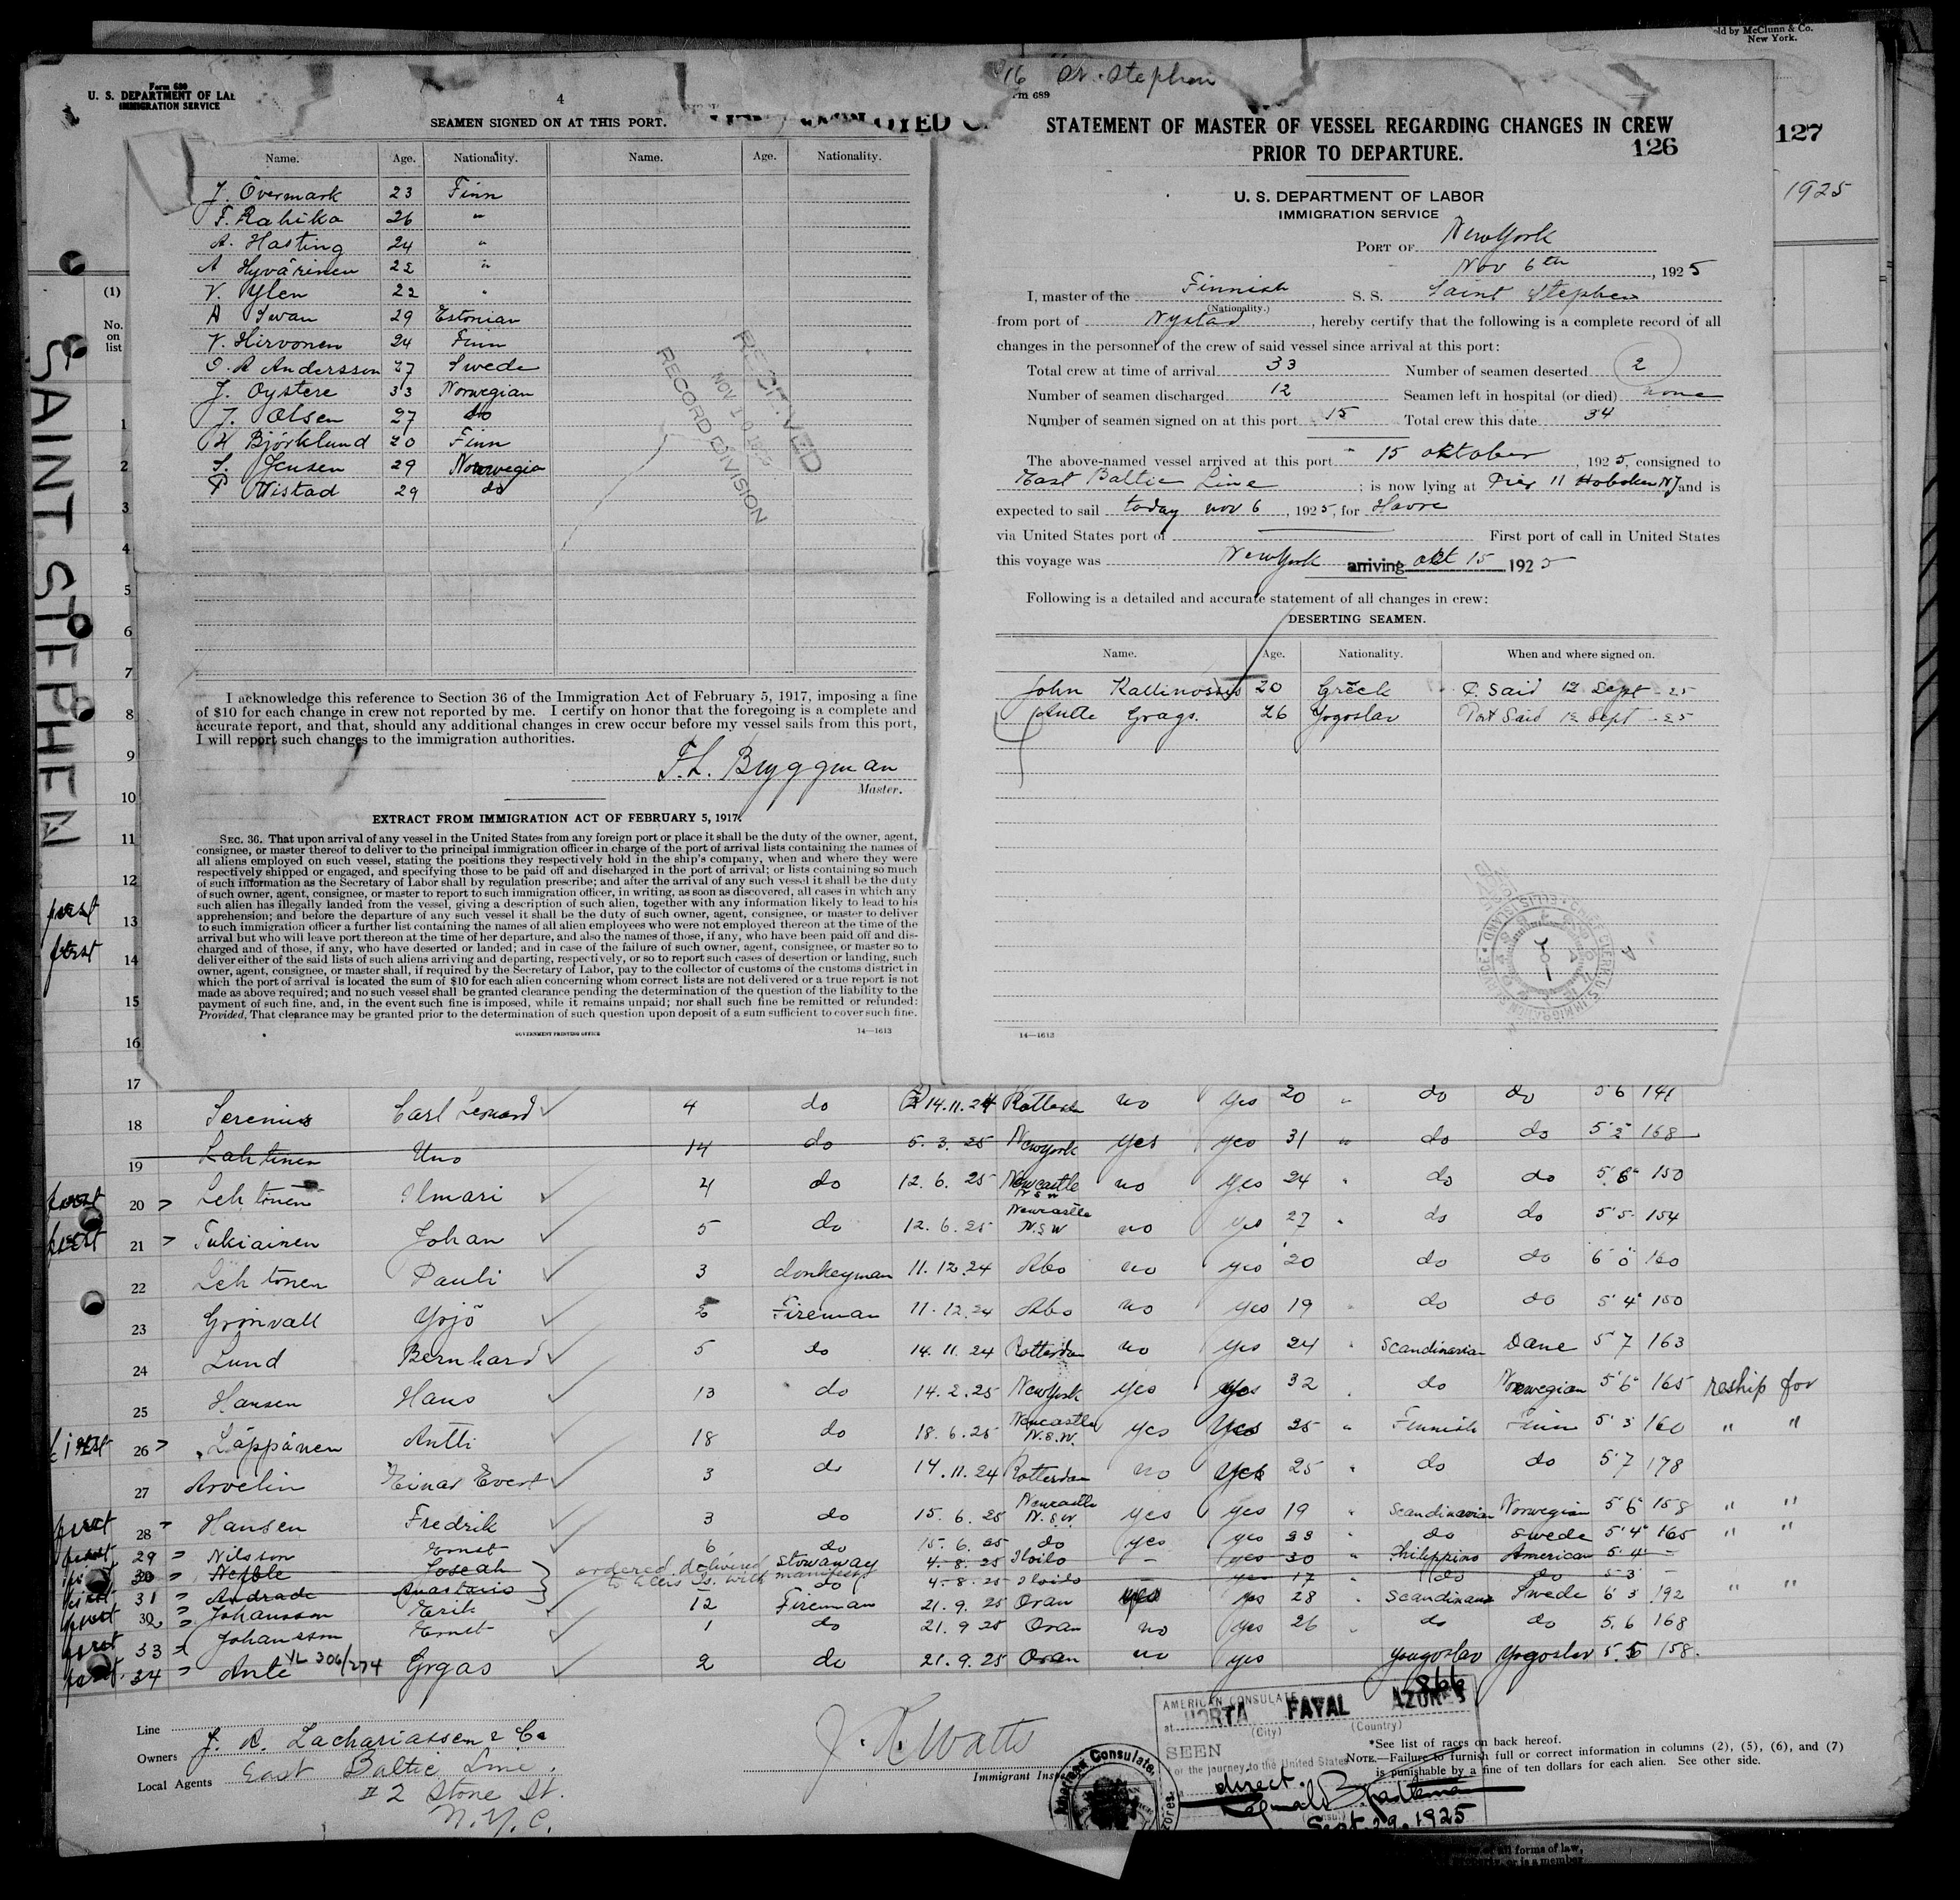 old by McClunn & Co.
New York.
Form 689
U. S. DEPARTMENT OF LAB
IMMIGRATION SERVICE
4
SEAMEN SIGNED ON AT THIS PORT.
EMPLOYED
Name. Age. Nationality. Name. Age. Nationality.
J. Overmark 23 Finn
F. Rahika 26 "
A. Hasting 24 "
A Hyvärinen 22 "
V. Ylen 22 "
A Swan 29 Estonian
V. Hirvonen 24 Finn
O. A Andersson 27 Swede
J. Oystere 33 Norwegian
J. Olsen 27 do
H Björklund 20 Finn
S. Jensen 29 Norwegia
P Wistad 29 do
RECEIVED
NOV 10 1925
RECORD DIVISION
I acknowledge this reference to Section 36 of the Immigration Act of February 5, 1917, imposing a fine
of $10 for each change in crew not reported by me. I certify on honor that the foregoing is a complete and
accurate report, and that, should any additional changes in crew occur before my vessel sails from this port,
I will report such changes to the immigration authorities.
F. L. Bryggman
Master.
EXTRACT FROM IMMIGRATION ACT OF FEBRUARY 5, 1917.
SEC. 36. That upon arrival of any vessel in the United States from any foreign port or place it shall be the duty of the owner, agent,
consignee, or master thereof to deliver to the principal immigration officer in charge of the port of arrival lists containing the names of
all aliens employed on such vessel, stating the positions they respectively hold in the ship's company, when and where they were
respectively shipped or engaged, and specifying those to be paid off and discharged in the port of arrival; or lists containing so much
of such information as the Secretary of Labor shall by regulation prescribe; and after the arrival of any such vessel it shall be the duty
of such owner, agent, consignee, or master to report to such immigration officer, in writing, as soon as discovered, all cases in which any
such alien has illegally landed from the vessel, giving a description of such alien, together with any information likely to lead to his
apprehension; and before the departure of any such vessel it shall be the duty of such owner, agent, consignee, or master to deliver
to such immigration officer a further list containing the names of all alien employees who were not employed thereon at the time of the
arrival but who will leave port thereon at the time of her departure, and also the names of those, if any, who have been paid off and dis-
charged and of those, if any, who have deserted or landed; and in case of the failure of such owner, agent, consignee, or master so to
deliver either of the said lists of such aliens arriving and departing, respectively, or so to report such cases of desertion or landing, such
owner, agent, consignee, or master shall, if required by the Secretary of Labor, pay to the collector of customs of the customs district in
which the port of arrival is located the sum of $10 for each alien concerning whom correct lists are not delivered or a true report is not
made as above required; and no such vessel shall be granted clearance pending the determination of the question of the liability to the
payment of such fine, and, in the event such fine is imposed, while it remains unpaid; nor shall such fine be remitted or refunded:
Provided, That clearance may be granted prior to the determination of such question upon deposit of a sum sufficient to cover such fine.
GOVERNMENT PRINTING OFFICE 14—1613
16 St. Stephen
rm 689
STATEMENT OF MASTER OF VESSEL REGARDING CHANGES IN CREW
PRIOR TO DEPARTURE.
126
127
1925
U. S. DEPARTMENT OF LABOR
IMMIGRATION SERVICE
PORT OF New York
Nov 6th, 1925
I, master of the Finnish S. S. Saint Stephen
(Nationality.)
from port of Nystad, hereby certify that the following is a complete record of all
changes in the personnel of the crew of said vessel since arrival at this port:
Total crew at time of arrival 33 Number of seamen deserted 2
Number of seamen discharged 12 Seamen left in hospital (or died) none
Number of seamen signed on at this port 15 Total crew this date 34
The above-named vessel arrived at this port 15 oktober, 1925, consigned to
East Baltic Line; is now lying at Pier 11 Hoboken NJ and is
expected to sail today nov 6, 1925, for Havre
via United States port of First port of call in United States
this voyage was New York arriving okt 15 1925
Following is a detailed and accurate statement of all changes in crew:
DESERTING SEAMEN.
Name. Age. Nationality. When and where signed on.
John Kallinossis 20 Greek P. Said 12 Sept - 25
Antte Grags. 26 Yogoslav Port Said 12 Sept - 25
14—1613
SAINT. STEPHEN
(1)
No.
on
list
1
2
3
4
5
6
7
8
9
10
11
12
first 13
first 14
15
16
17
18 Serenius Carl Leonard 4 do 14.11.24 Rotterdam no yes 20 " do do 5 6 141
19 Lahtinen Uno 14 do 5. 3. 25 New york yes yes 31 " do do 5' 2" 168
first 20 > Lehtonen Ilmari 4 do 12. 6. 25 Newcastle N S W no yes 24 " do do 5' 6" 150
first 21 > Tukiainen Johan 5 do 12. 6. 25 Newcastle N.S.W no yes 27 " do do 5' 5 154
22 Lehtonen Pauli 3 donkeyman 11. 12. 24 Abo no yes 20 do do 6 0 160
23 Grönvall Yrjö 2 Fireman 11. 12. 24 Abo no yes 19 do do 5' 4" 150
24 Lund Bernhard 5 do 14. 11. 24 Rotterdam no yes 24 " Scandinavian Dane 5' 7 163
25 Hansen Hans 13 do 14. 2. 25 New York yes yes 32 " do Norwegian 5' 6" 165 reship for
first 26 > Läppänen Antti 18 do 18. 6. 25 Newcastle N.S.W. yes yes 25 " Finnish Finn 5' 3" 160 " "
27 Arvelin Einar Evert 3 do 14. 11. 24 Rotterdam no yes 25 " do do 5' 7 178
first 28 > Hansen Fredrik 3 do 15. 6. 25 Newcastle N.S.W. yes yes 19 " Scandinavian Norwegian 5' 6" 158 " "
first 29 > Nilsson Ernst 6 do 15. 6. 25 do yes yes 23 " do Swede 5' 4" 165 " "
first 30 > Nefble Joseah ordered delivered stowaway 4-8-25 Iloilo - yes 30 " Philippino American 5-4 -
first 31 > Andrade Anastasio to Ellis Is. with manifest do 4-8-25 Iloilo - yes 17 " do do 5-3 -
first 32 > Johansson Erik 12 Fireman 21. 9. 25 Oran yes yes 28 " Scandinav Swede 6' 3" 192 " "
first 33 x Johansson Ernst 1 do 21. 9 25 Oran no yes 26 " do do 5, 6 168
first 34 > Ante VL 306/274 Grgas 2 do 21. 9. 25 Oran no yes Yougoslav Yogoslav 5. 5 158.
866
Line
Owners J. A. Zachariassen & Co
Local Agents East Baltic Line.
# 2 Stone St.
N.Y.C.
J. R. Watts
Immigrant Ins
AMERICAN CONSULATE
at HORTA FAYAL AZORES
(City) (Country)
SEEN
or the journey to the United States
direct.
Sept. 29. 1925
American Consulate.
*See list of races on back hereof.
NOTE.—Failure to furnish full or correct information in columns (2), (5), (6), and (7)
is punishable by a fine of ten dollars for each alien. See other side.
all forms of law,
or is a member